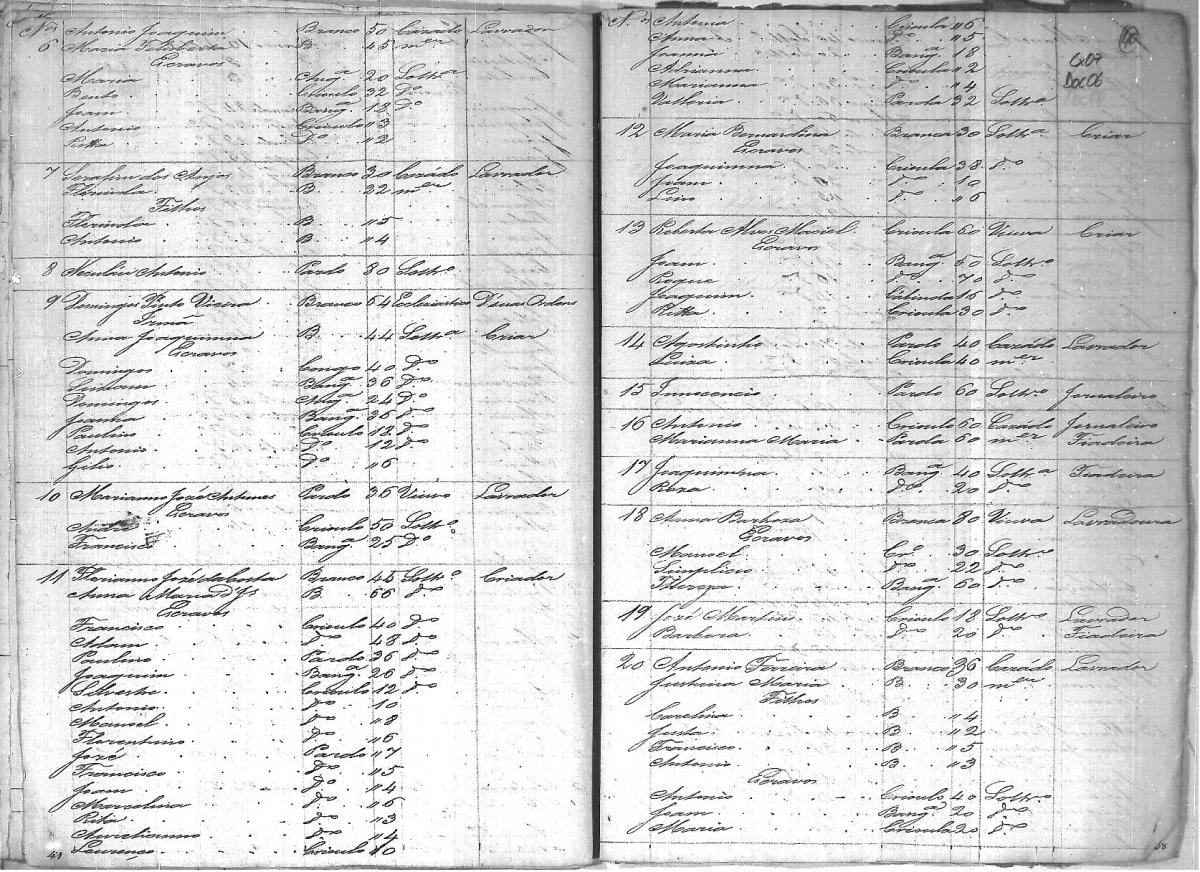 Nos Antonio Joaquim Branco 50 Cazádo Lavrador
6 Maria Felisberta B. 45 mer
Escravos
Maria Angª 20 Soltrª
Bento Crioulo 32 Do
Joam Bangª 18 Do
Antonio Crioulo 13
Ritta Do 12
7 Serafim dos Anjos Branco 30 Cazádo Lavrador
B. 22 mer
Filhos
B 5
Antonio B 4
8 Antonio Pardo 80 Soltro
9 Domingos Pinto Vieira Branco 64 Ecleziastico D'suas Ordens
Irmã
Anna Joaquinna B. 44 Soltrª Criar
Escravos
Domingos Congo 40 Do
Bangª 36 Do
Domingos Angª 24 Do
Joanna Bangª 36 Do
Paulino Crioulo 18 Do
Antonio Do 12 Do
Gilio Do 6
10 Marianno José Antunes Pardo 36 Viuvo Lavrador
Escravos
André Crioulo 50 Soltro
Francisco Bangª 25 Do
11 Florianno José da Costa Branco 45 Soltro Criador
Anna Maria d'Js B. 66 do
Escravos
Francisco Crioulo 40 do
Adam do 48 do
Paulino Pardo 36 do
Joaquim Bangª 26 do
Silvestre Crioulo 12 do
Antonio do 10
Manoel do 8
Florentino do 6
José Pardo 7
Francisco do 5
Joam do 4
Marcelina do 6
Rita do 3
Aureliano do 4
Lourenço Crioulo 10
Nos Antonia Crioula 6
Anna do 5
Joanna Bangª 18
Adrianna Crioula 12
Marianna do 4
Parda 32 Soltrª
Cx07
Doc06
12 Maria Bernardina Branca 30 Soltrª Criar
Escravos
Joaquinna Crioula 38 do
Joam do 10
Lino do 6
13 Roberta Alves Maciel Crioula 60 Viuva Criar
Escravos
Joam Bangª 50 Soltro
Roque do 70 do
Joaquim Cabinda 16 do
Ritta Crioula 30 do
14 Agostinho Pardo 40 Cazádo Lavrador
Luiza Crioula 40 mer
15 Innocencio Pardo 60 Soltro Jornaleiro
16 Antonio Crioulo 60 Cazádo Jornaleiro
Marianna Maria Parda 60 mer Fiadeira
17 Joaquinna Bangª 40 Soltrª Fiadeira
Roza do 20 do
18 Anna Barboza Branca 80 Viuva Lavradoura
Escravos
Manoel Cro 30 Soltro
Simplicio do 22 do
Thereza Bangª 60 do
19 José Martins Crioulo 18 Soltro Lavrador
Barbora do 20 do Fiadeira
20 Antonio Fereira Branco 36 Cazádo Lavrador
Justina Maria B 30 mer
Filhos
Carolina B 4
Justa B 2
Francisco B 5
Antonio B 3
Escravos
Antonio Crioulo 40 Soltro
Joam Bangª 20 do
Maria Crioula 20 do